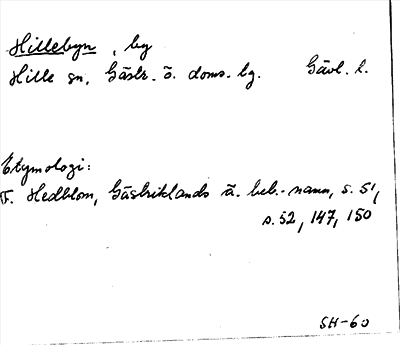 Hillebyn, by
Hille sn, Gästr. ö. doms. bg. Gävl. l.
Etymologi:
F. Hedblom, Gästriklands ä. beb.-namn, s. 51,
s. 52, 147, 150
SH-60